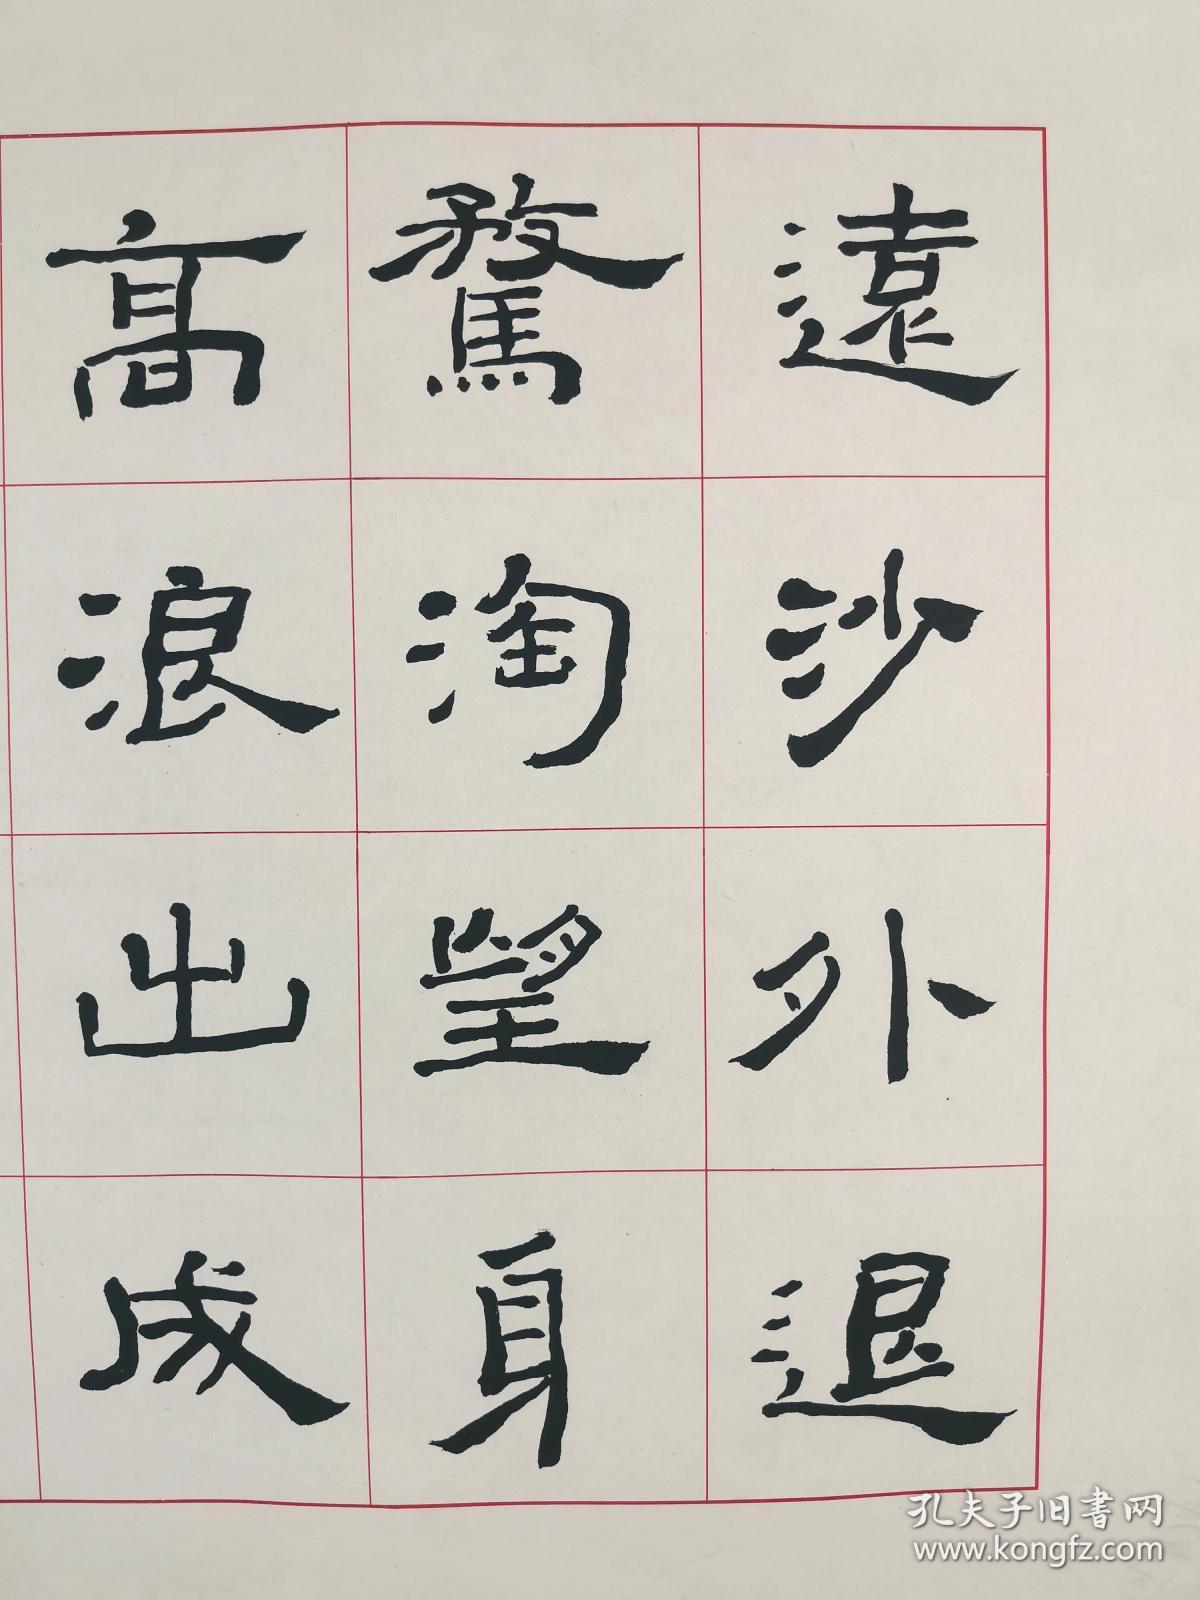 遠沙外退
騖淘望身
高浪出成
孔夫子旧书网
www.kongfz.com